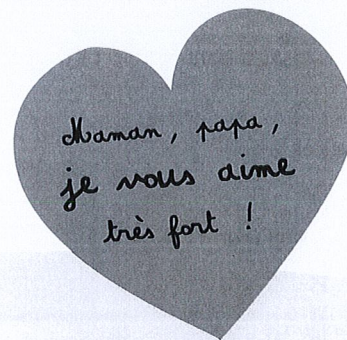 Maman, papa,
je vous aime
très fort !